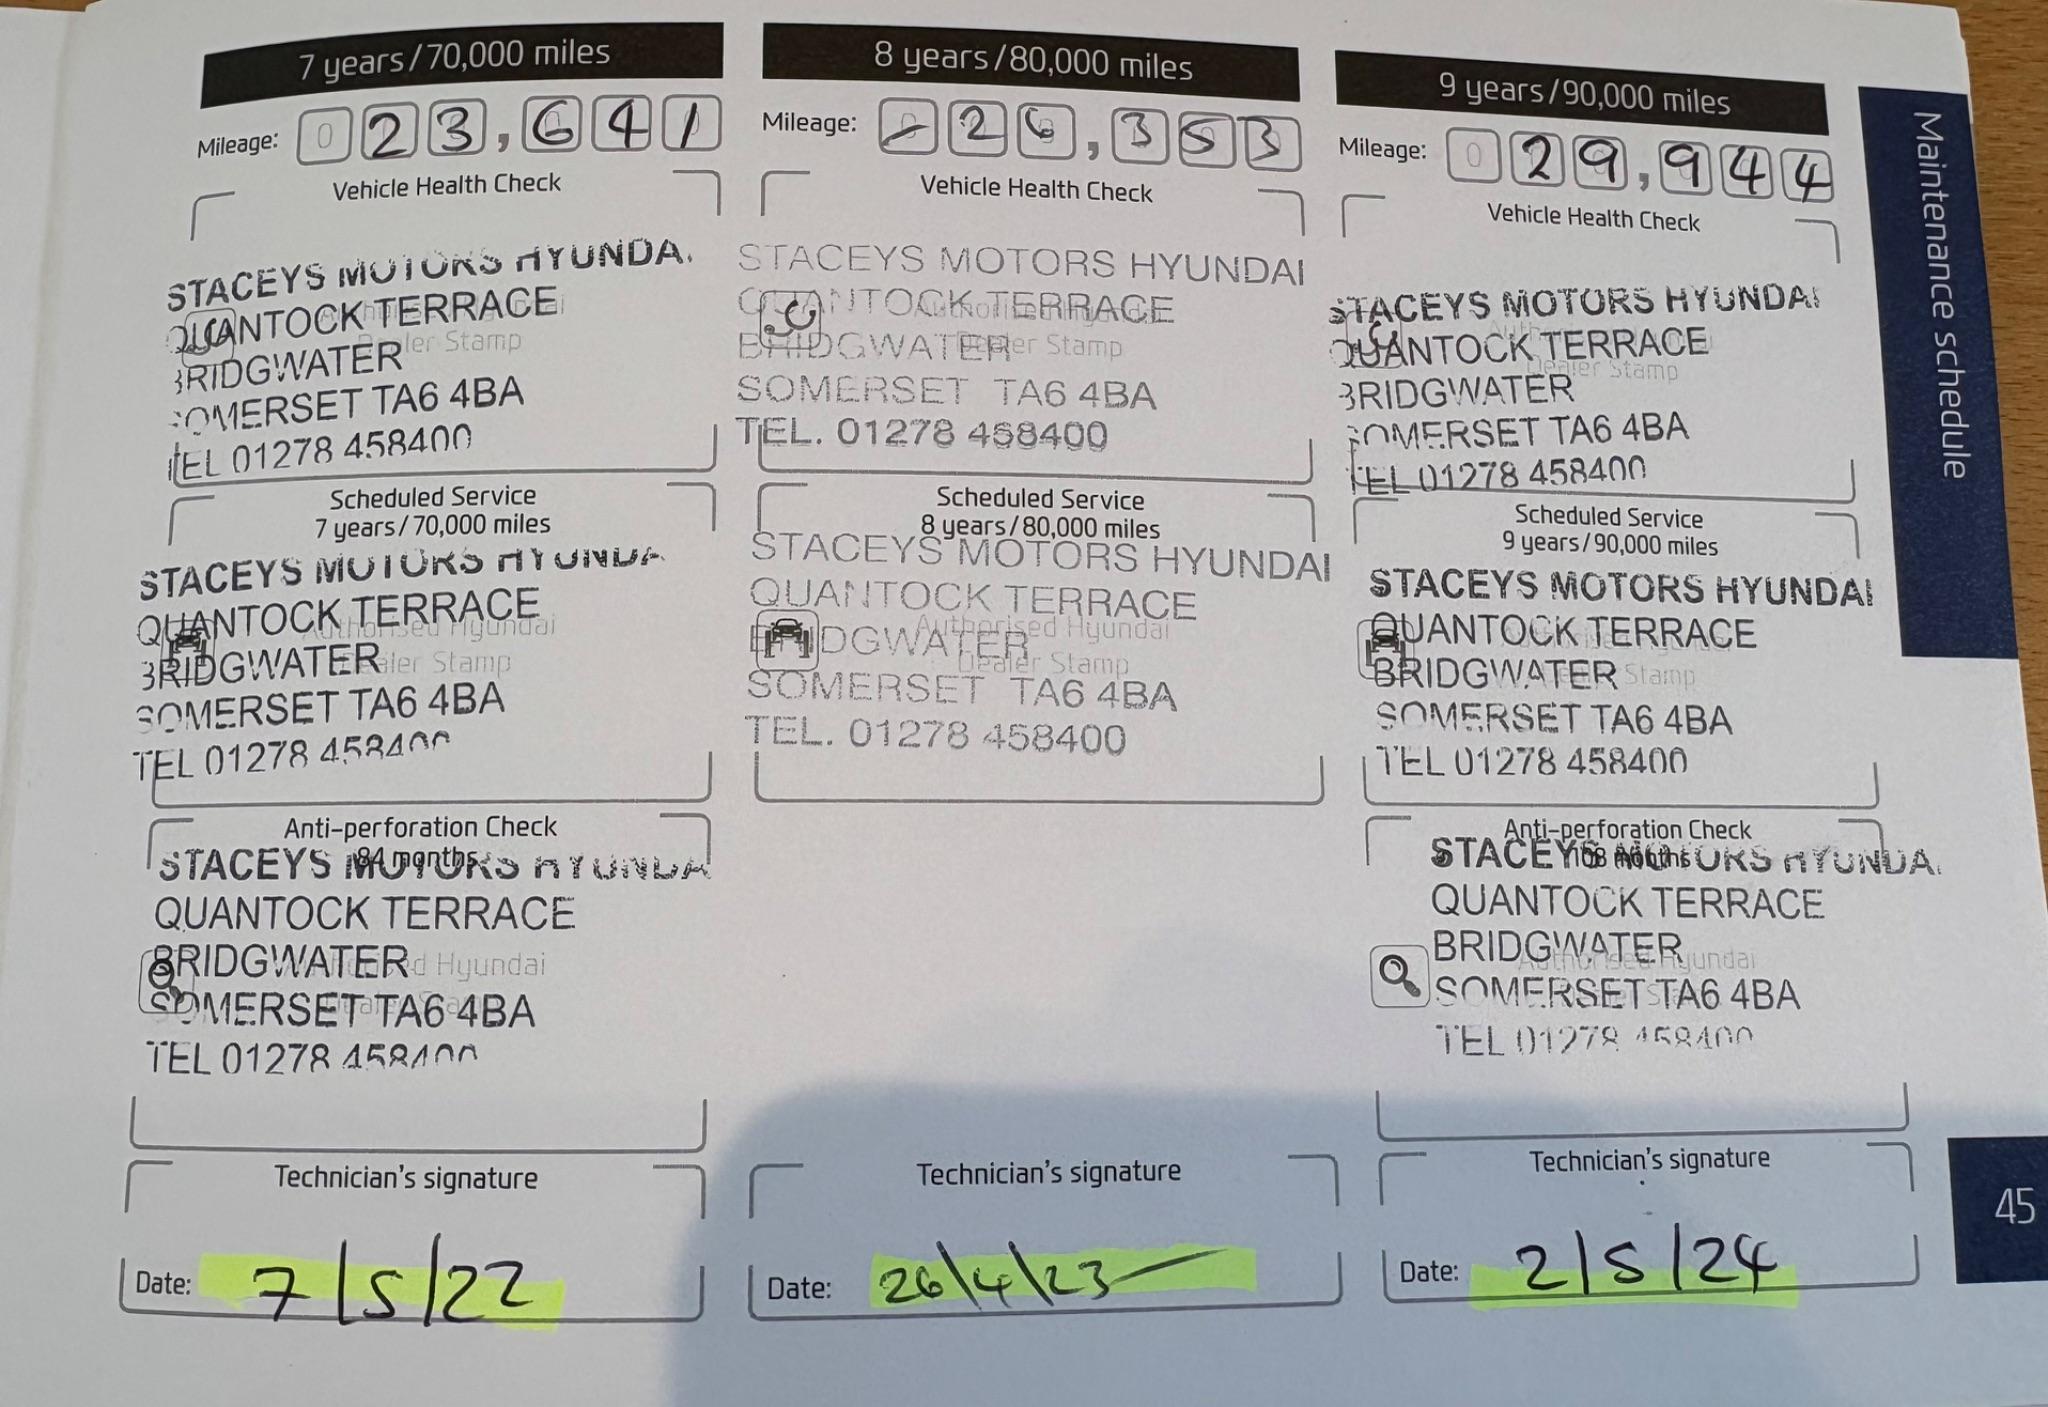 7 years/70,000 miles
Mileage: 023,641
Vehicle Health Check
STACEYS MOTORS HYUNDAI
QUANTOCK TERRACE
Authorised Hyundai
Dealer Stamp
BRIDGWATER
SOMERSET TA6 4BA
TEL 01278 458400
Scheduled Service
7 years/70,000 miles
STACEYS MOTORS HYUNDAI
QUANTOCK TERRACE
Authorised Hyundai
Dealer Stamp
BRIDGWATER
SOMERSET TA6 4BA
TEL 01278 458400
Anti-perforation Check
84 months
STACEYS MOTORS HYUNDAI
QUANTOCK TERRACE
BRIDGWATER
Authorised Hyundai
Dealer Stamp
SOMERSET TA6 4BA
TEL 01278 458400
Technician's signature
Date: 7/5/22
8 years/80,000 miles
Mileage: -26,353
Vehicle Health Check
STACEYS MOTORS HYUNDAI
QUANTOCK TERRACE
Authorised Hyundai
Dealer Stamp
BRIDGWATER
SOMERSET TA6 4BA
TEL. 01278 458400
Scheduled Service
8 years/80,000 miles
STACEYS MOTORS HYUNDAI
QUANTOCK TERRACE
Authorised Hyundai
Dealer Stamp
BRIDGWATER
SOMERSET TA6 4BA
TEL. 01278 458400
Technician's signature
Date: 26/4/23
9 years/90,000 miles
Mileage: 029,944
Vehicle Health Check
STACEYS MOTORS HYUNDAI
QUANTOCK TERRACE
Authorised Hyundai
Dealer Stamp
BRIDGWATER
SOMERSET TA6 4BA
TEL 01278 458400
Scheduled Service
9 years/90,000 miles
STACEYS MOTORS HYUNDAI
QUANTOCK TERRACE
Authorised Hyundai
Dealer Stamp
BRIDGWATER
SOMERSET TA6 4BA
TEL 01278 458400
Anti-perforation Check
108 months
STACEYS MOTORS HYUNDAI
QUANTOCK TERRACE
BRIDGWATER
Authorised Hyundai
Dealer Stamp
SOMERSET TA6 4BA
TEL 01278 458400
Technician's signature
Date: 2/5/24
Maintenance schedule
45